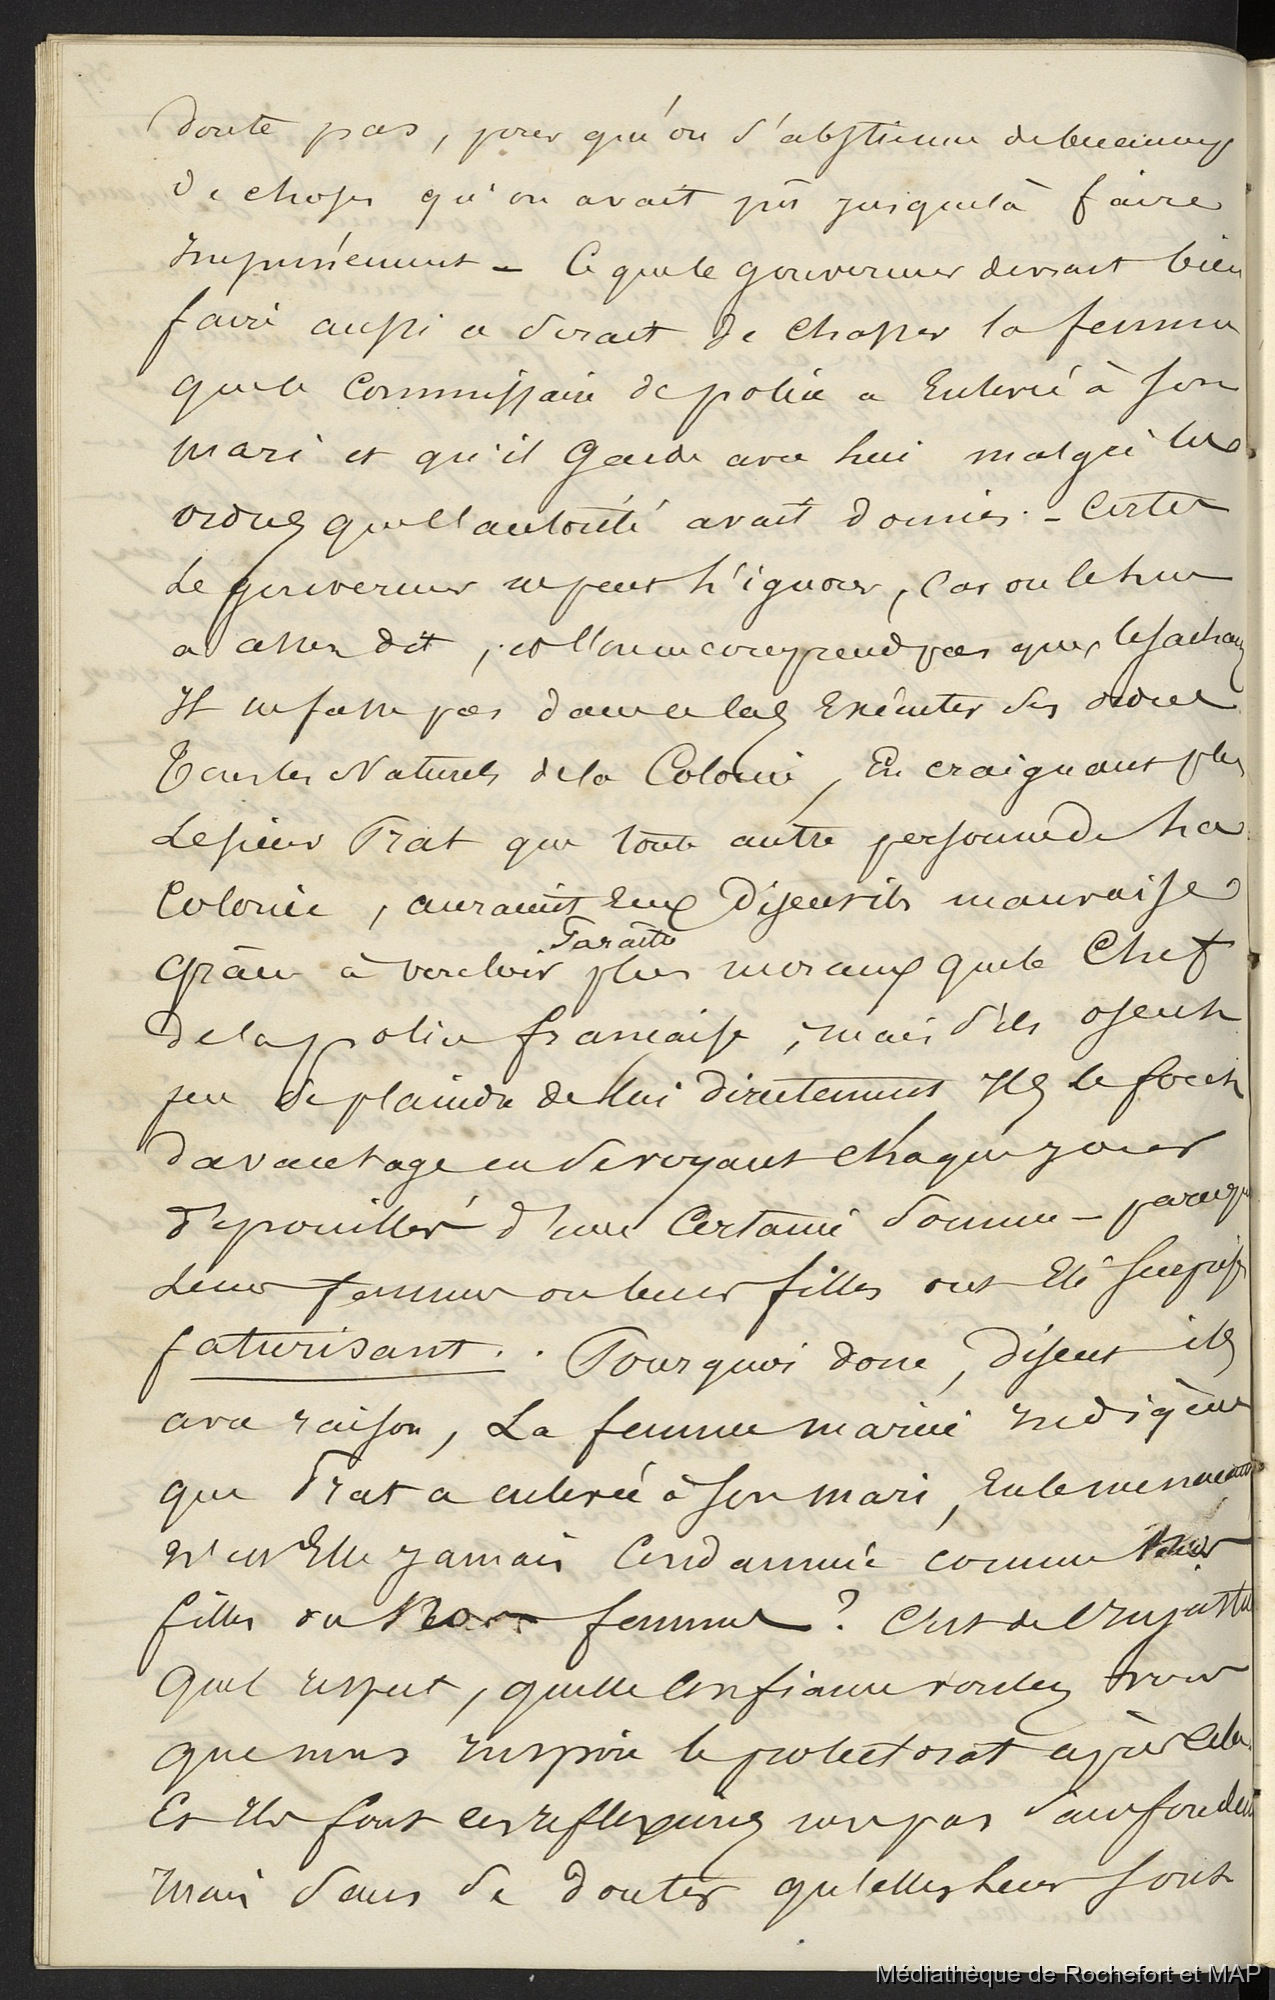 doute pas, pour qu'on s'abstienne de beaucoup
de choses qu'on avait pû jusquelà faire
impunément - Ce que le gouverneur devrait bien
faire aussi ce serait de chasser la femme
que le Commissaire de police a Enlevée à son
mari et qu'il Garde avec lui malgré les
ordres que l'autorité avait donnés. - Certes
Le gouverneur ne peut l'ignorer, Car on le lui
a assez dit, et l'on ne comprend pas que, le sachant
Il ne fasse pas dans ce cas Exécuter ses ordres
Tous les Naturels de la Colonie, En craignant plus
Le sieur Prat que toute autre personne de la
Colonie, auraient Eux disent-ils mauvaise
Paraitre
Grâce à vouloir plus moraux que le Chef
de la police française, mais s'ils osent
peu se plaindre de lui directement Ils le font
davantage en se voyant chaque jour
dépouiller d'une Certaine somme - parceque
Leurs femmes ou leurs filles ont Eté surprises
faturisant.. Pourquoi donc, disent ils
avec raison, La femme mariée indigène
que Prat a enlevée à son mari, En le menaçant
n'est Elle jamais Condamnée comme nos
filles ou Nos femmes? C'est de l'injustice
Quel respect, quelle Confiance voulez vous
que nous inspire le protectorat après Cela.
Et Ils font ces réflexions non pas sans fondement
mais sans se douter qu'elles leur sont
Médiathèque de Rochefort et MAP